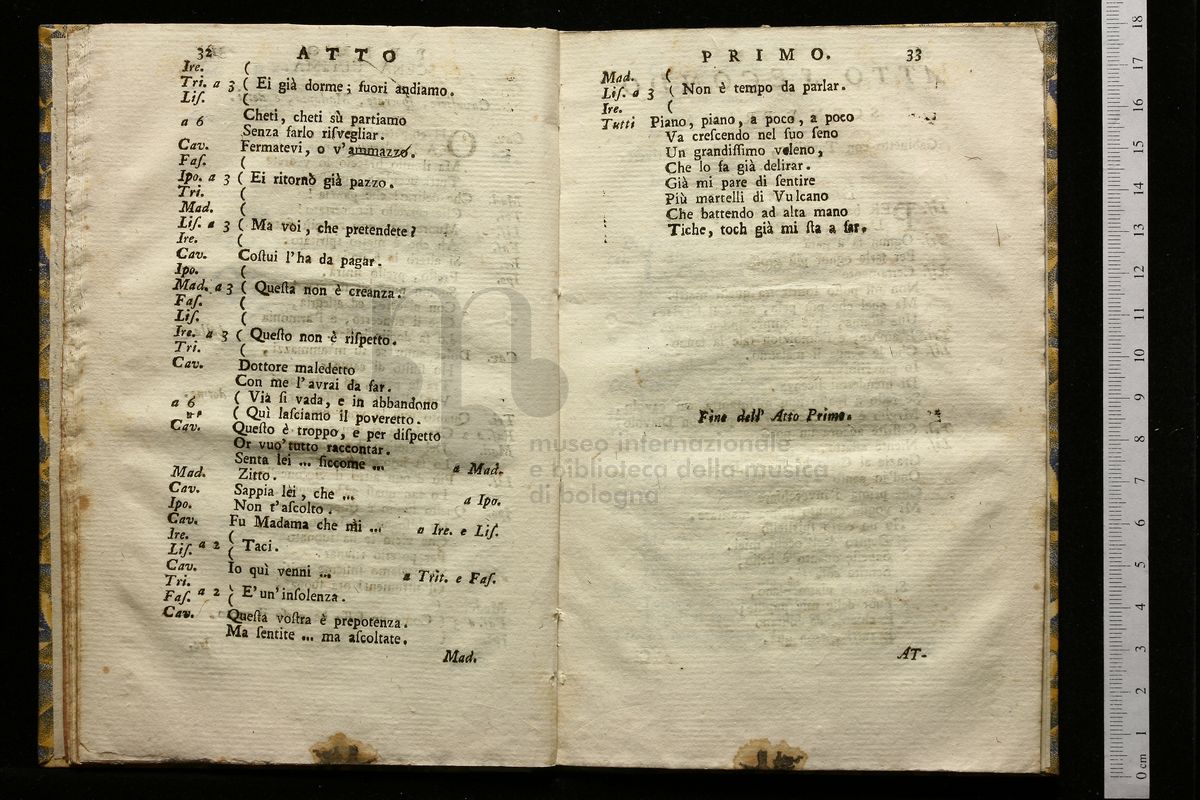 32 ATTO
Ire. (
Tri. a 3 ( Ei già dorme; fuori andiamo.
Liſ. (
a 6 Cheti, cheti sù partiamo
Senza farlo riſvegliar.
Cav. Fermatevi, o v'ammazzo.
Faſ. (
Ipo. a 3 ( Ei ritornò già pazzo.
Tri. (
Mad. (
Liſ. a 3 ( Ma voi, che pretendete?
Ire. (
Cav. Coſtui l'ha da pagar.
Ipo. (
Mad. a 3 ( Queſta non è creanza.
Faſ. (
Liſ. (
Ire. a 3 ( Queſto non è riſpetto.
Tri. (
Cav. Dottore maledetto
Con me l'avrai da far.
a 6 ( Via ſi vada, e in abbandono
( Quì laſciamo il poveretto.
Cav. Queſto è troppo, e per diſpetto
Or vuo' tutto raccontar.
Senta lei ... ſiccome ... a Mad.
Mad. Zitto.
Cav. Sappia lei, che ... a Ipo.
Ipo. Non t'aſcolto.
Cav. Fu Madama che mi ... a Ire. e Liſ.
Ire. (
Liſ. a 2 ( Taci.
Cav. Io quì venni ... a Trit. e Faſ.
Tri. (
Faſ. a 2 ( E' un' inſolenza.
Cav. Queſta voſtra è prepotenza.
Ma ſentite ... ma aſcoltate.
Mad.
PRIMO. 33
Mad. (
Liſ. a 3 ( Non è tempo da parlar.
Ire. (
Tutti Piano, piano, a poco, a poco
Va creſcendo nel ſuo ſeno
Un grandiſſimo veleno,
Che lo fa già delirar.
Già mi pare di ſentire
Più martelli di Vulcano
Che battendo ad alta mano
Tiche, toch già mi ſta a far.
Fine dell' Atto Primo.
AT-
museo internazionale
e biblioteca della musica
di bologna
0 cm 1 2 3 4 5 6 7 8 9 10 11 12 13 14 15 16 17 18